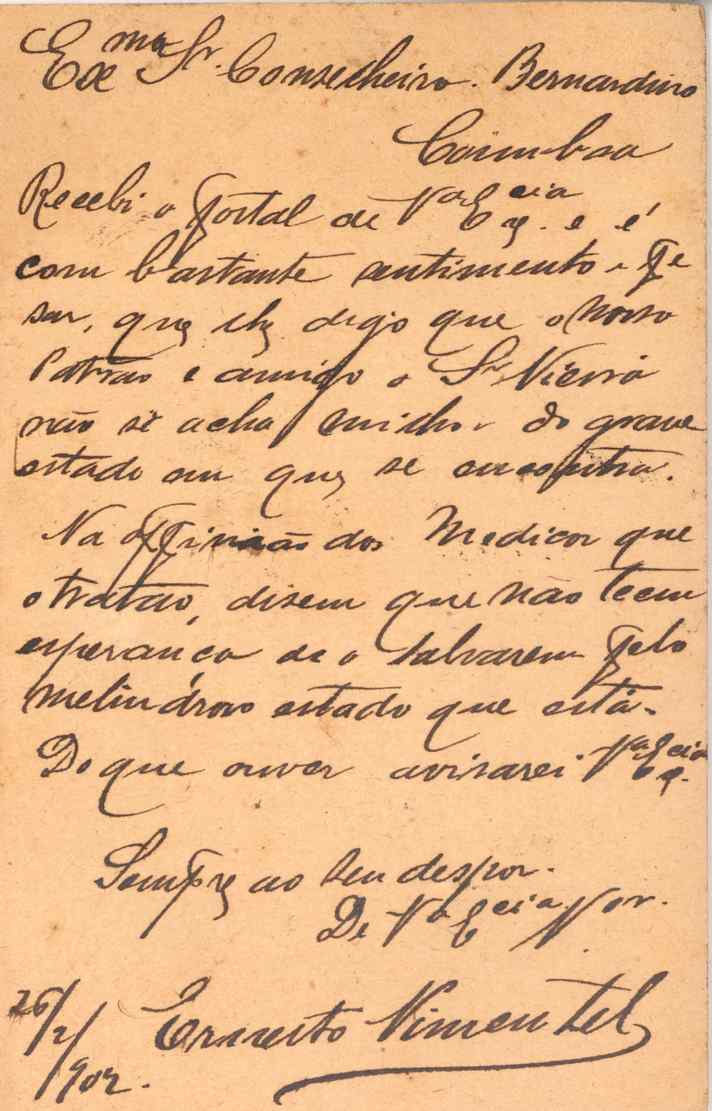 Exmo Sr. Conselheiro. Bernardino
Coimbra
Recebi o postal de Va Excia. e é
com bastante sentimento e pe
sar, que lhe digo que o nosso
Patrão e amigo o Sr. Vieira
não se acha milhor do grave
estado em que se encontra.
Na oppinião dos Medicos que
o tratão, disem que não teem
esperança de o salvarem pelo
melindroso estado que está.
Do que ouver avisarei Va Excia.
Sempre ao seu despor.
De Va Excia Vor.
26/2/902.
Ernesto Pimentel